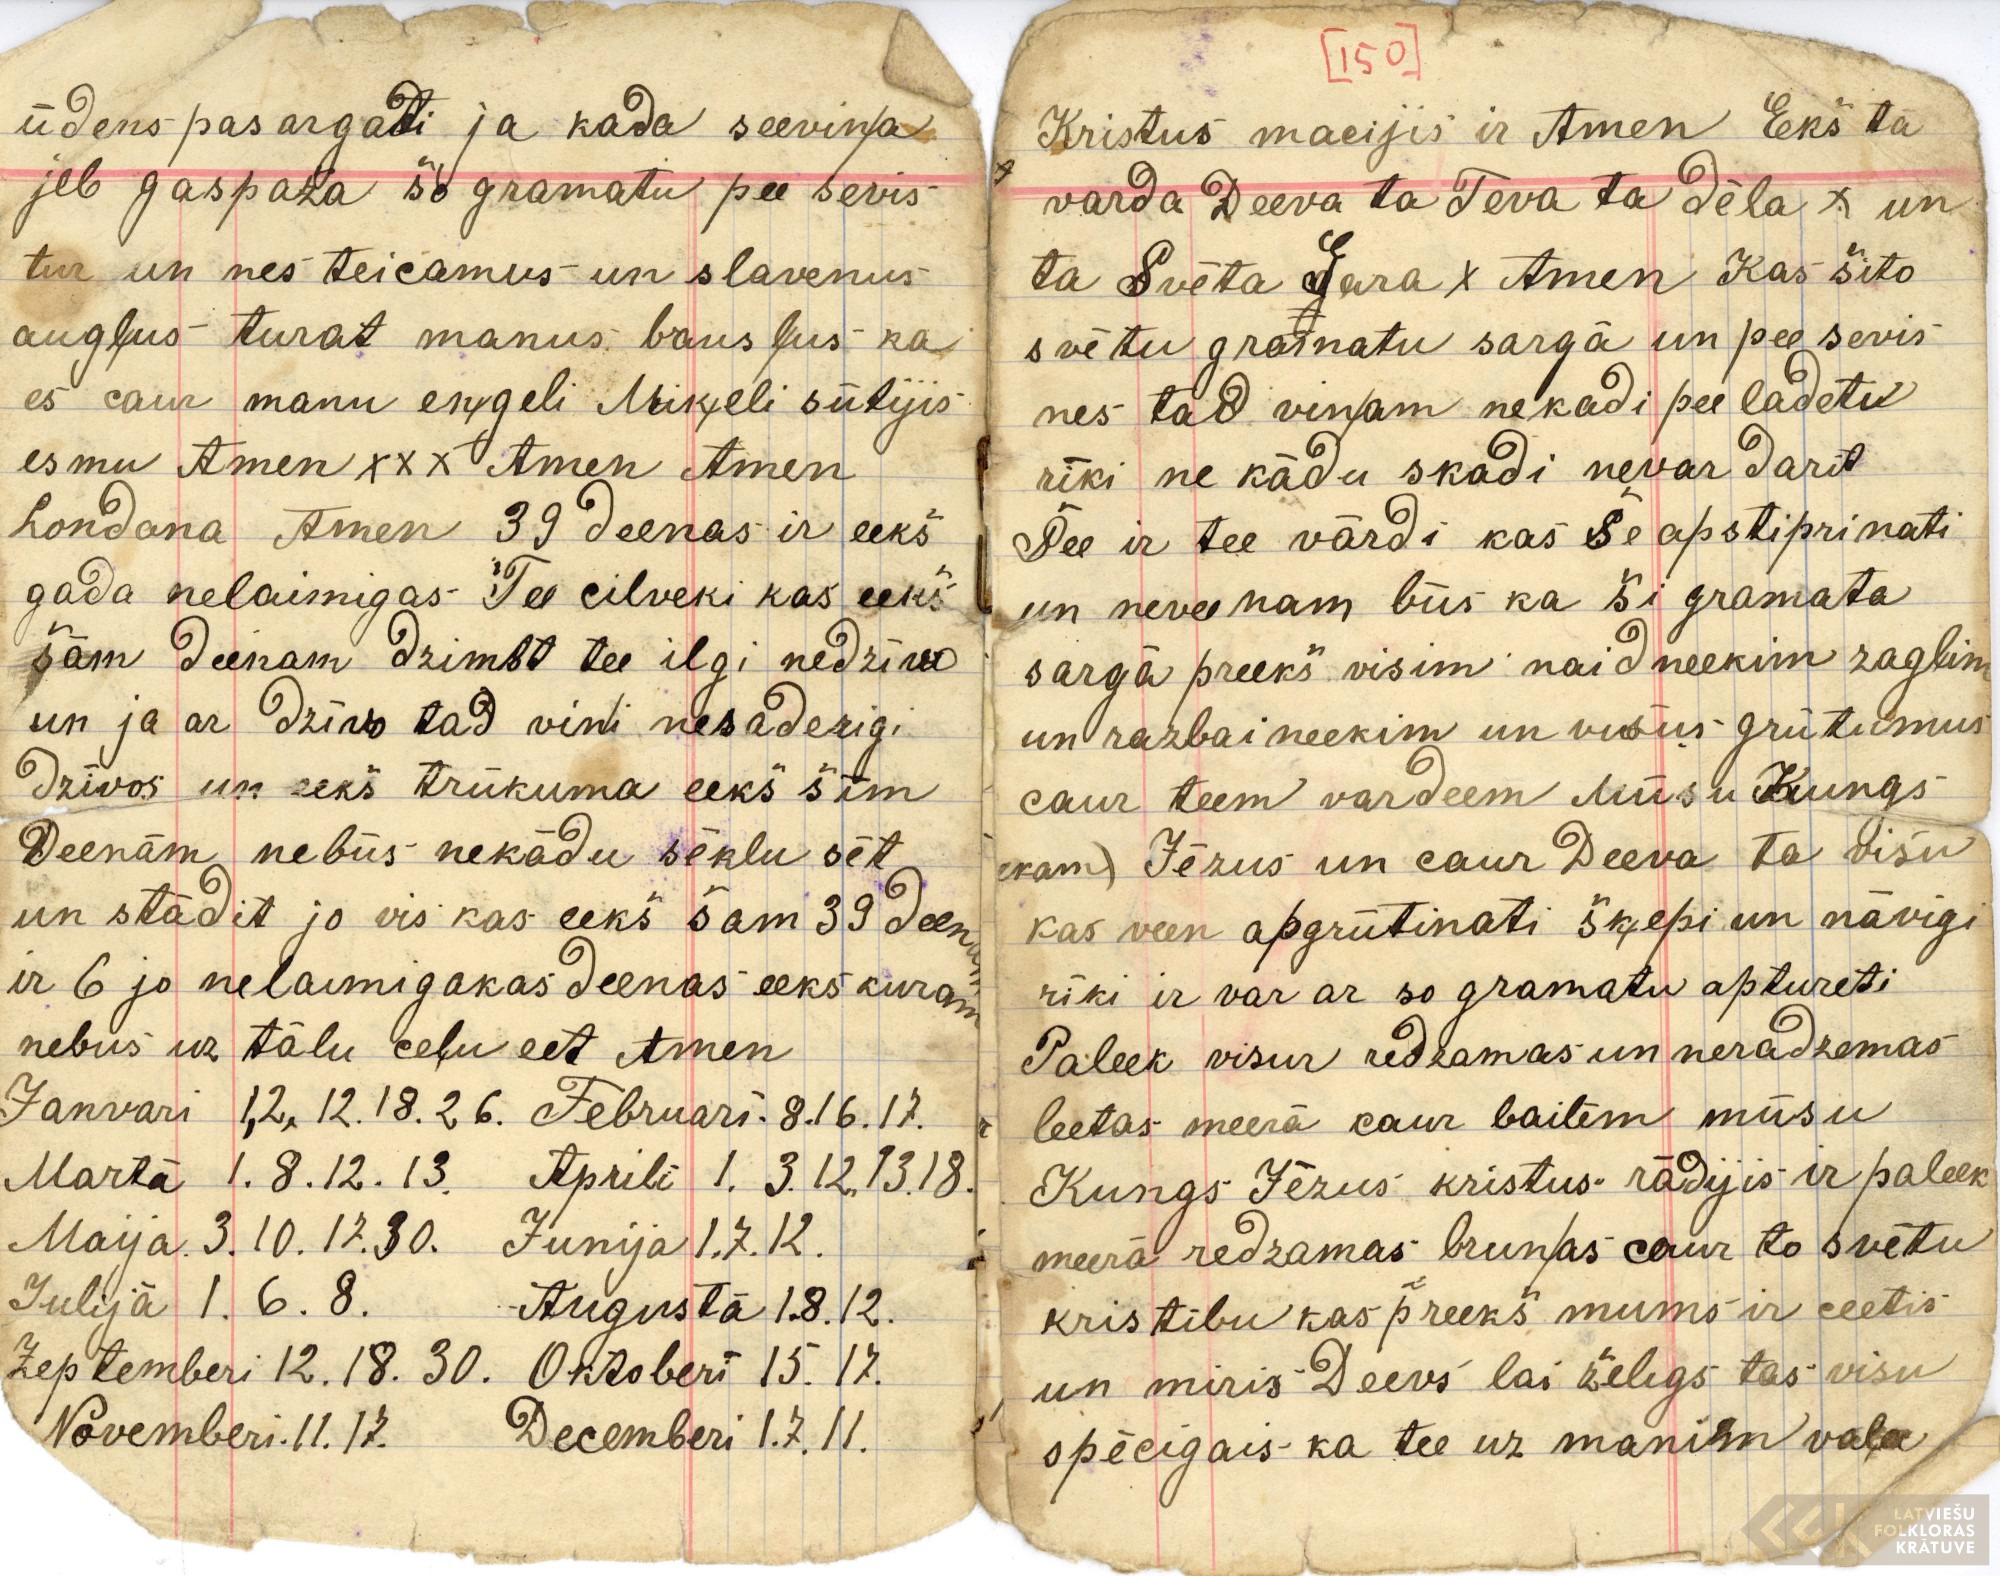 ūdens pasargati ja kada seeviņa
jeb gaspaža šo gramatu pee sevis
tur un nes teicamus un slavenus
augļus turat manus baušļus ka
es caur manu eņgeli Miķeli sūtijis
esmu Amen xxx Amen Amen
Londona Amen 39 deenas ir eekš
gada nelaimigas Tee cilveki kas eekš
šām deenam dzimst tee ilgi nedzīvo
un ja ar dzīvo tad viņi nesaderigi
dzīvos un eekš trūkuma eekš šīm
Deenām nebūs nekādu sēklu sēt
un stādit jo vis kas eekš šam 39 deenam
ir 6 jo nelaimigakas deenas eekš kuram
nebus uz tālu ceļu eet Amen
Janvari 1,2, 12. 18. 26. Februarī. 8. 16. 17.
Martā 1. 8. 12. 13. Aprilī 1. 3. 12. 13. 18.
Maija. 3. 10. 17. 30. Junija 1. 7. 12.
Julijā 1. 6. 8. Augustā 1. 8. 12.
Zeptemberi 12. 18. 30. Oktoberī 15. 17.
Novemberi. 11. 17. Decemberī 1. 7. 11.
[150]
Kristus macijis ir Amen Ekš ta
varda Deeva ta Teva ta dēla x un
ta Svēta Gara x Amen Kas šito
svētu gramatu sargā un pee sevis
nes tad viņam nekadi pee ladetu
rīki ne kādu skadi nevar darit
Šee ir tee vārdi kas še apstiprinati
un neveenam būs ka ši gramata
sargā preekš visim naidneekim zagļim
un razbaineekim un visus grūtumus
caur teem vardeem Mūsu Kungs
Jēzus un caur Deeva ta visu
kas veen apgrūtinati šķepi un nāvigi
rīki ir var ar so gramatu apturēti
Paleek visur redzamas un neradzemas
leetas meerā caur bailēm mūsu
Kungs Jēzus kristus rādijis ir paleek
meerā redzamas bruņas caur to svētu
kristību kas preekš mums ir ceetis
un miris Deevs lai želigs tas visu
spēcigais ka tee uz manim vaļa
LATVIEŠU
FOLKLORAS
KRĀTUVE